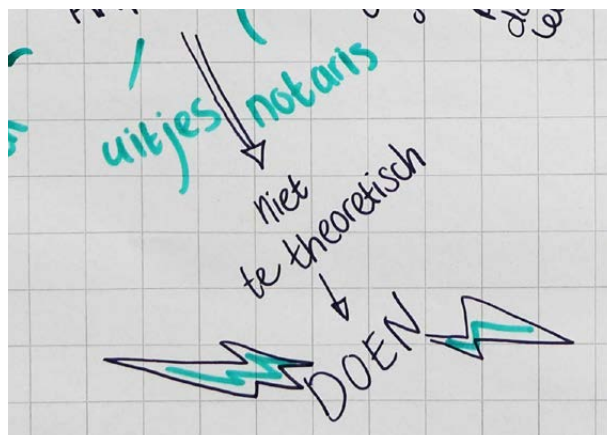 uitjes notaris
niet
te theoretisch
DOEN